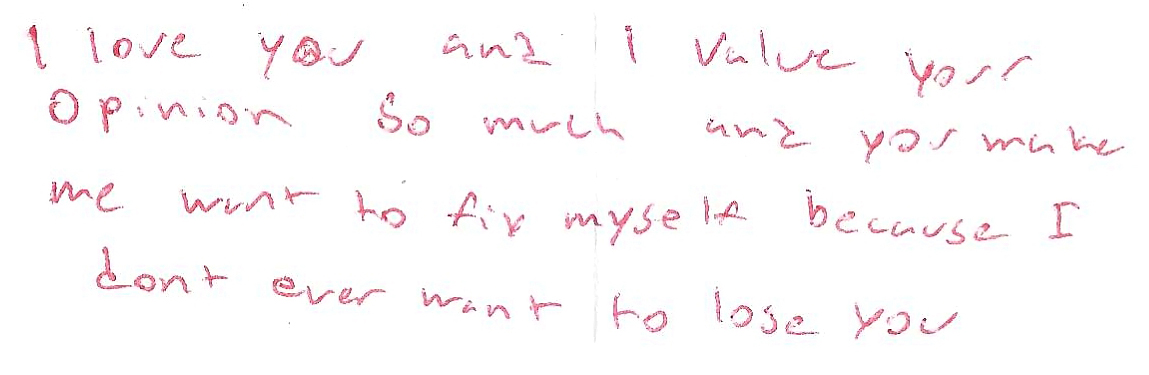 I love you and I value your
opinion so much and you make
me want to fix myself because I
dont ever want to lose you